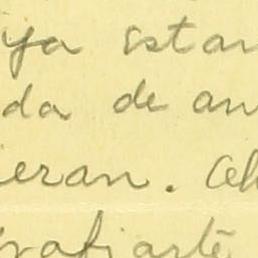 ya estan
da de an
ieran. Ah
rafiarte